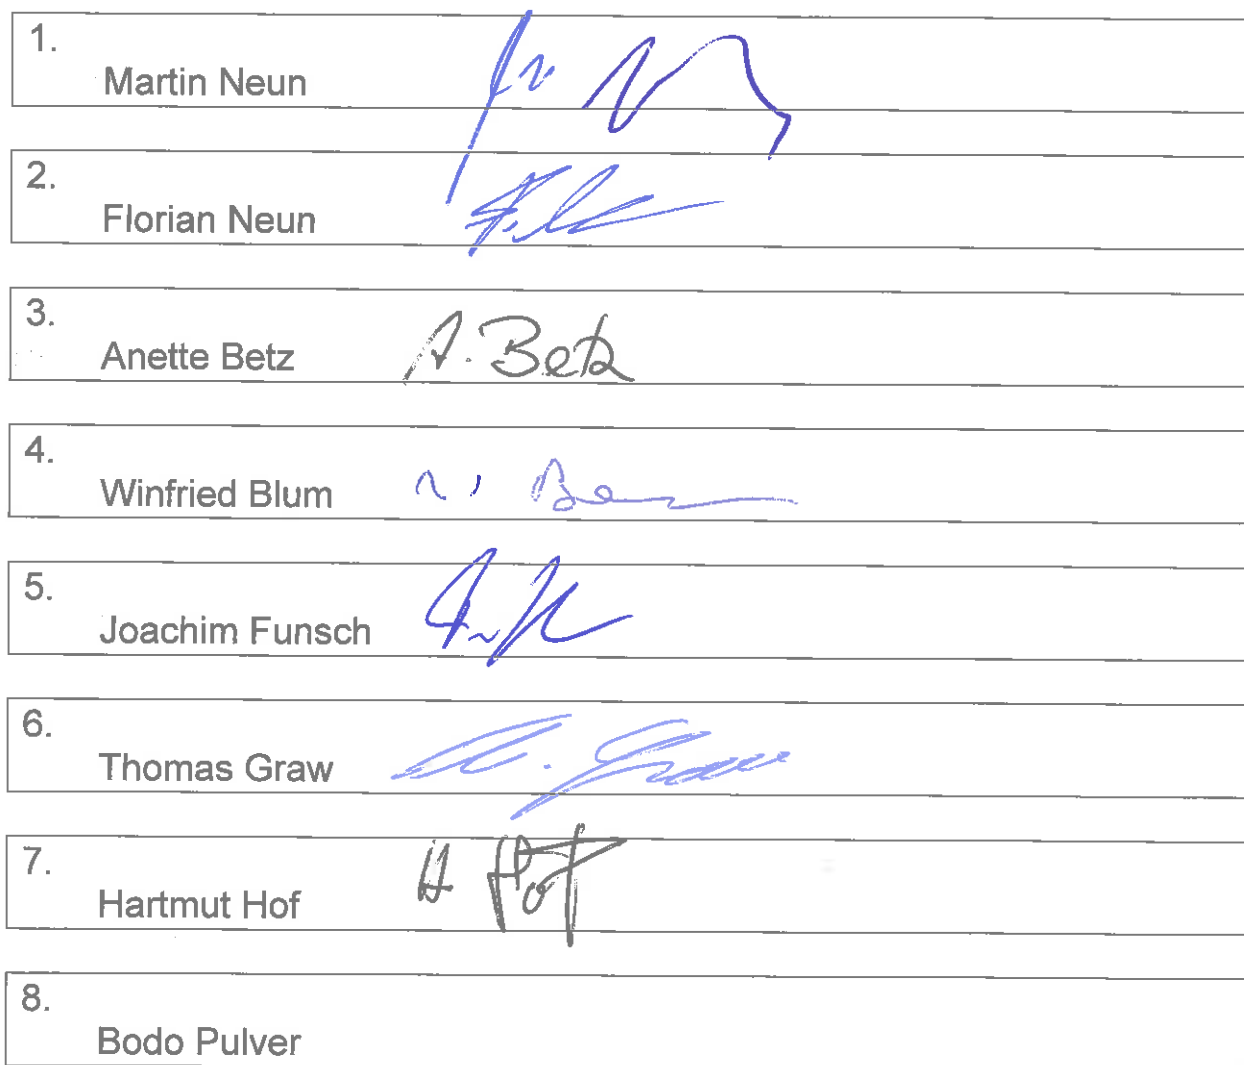 1.
Martin Neun
2.
Florian Neun
3.
Anette Betz A. Betz
4.
Winfried Blum
5.
Joachim Funsch
6.
Thomas Graw
7.
Hartmut Hof H Hof
8.
Bodo Pulver